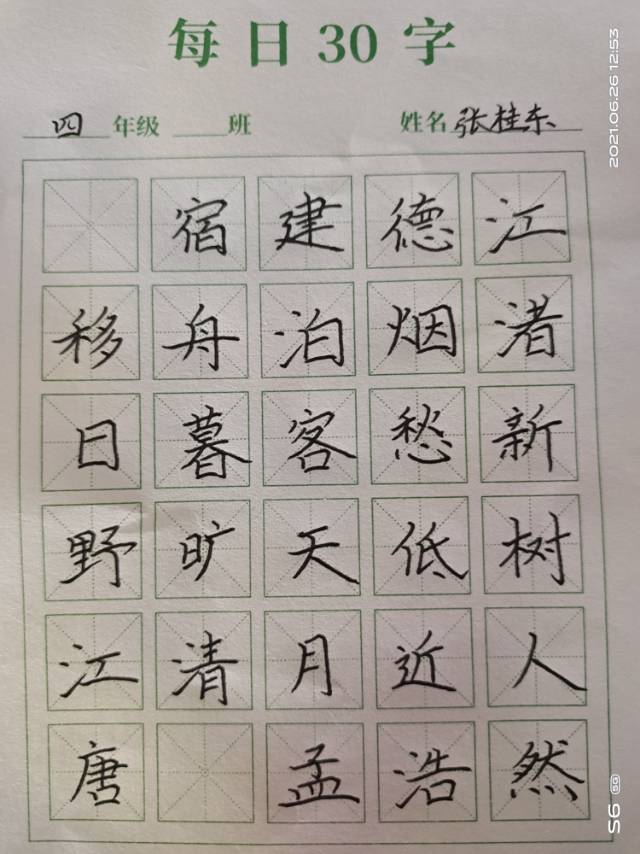 每日30字
四年级 班 姓名 张桂东
宿建德江
移舟泊烟渚
日暮客愁新
野旷天低树
江清月近人
唐 孟浩然
2021.06.26 12:53
S6 5G